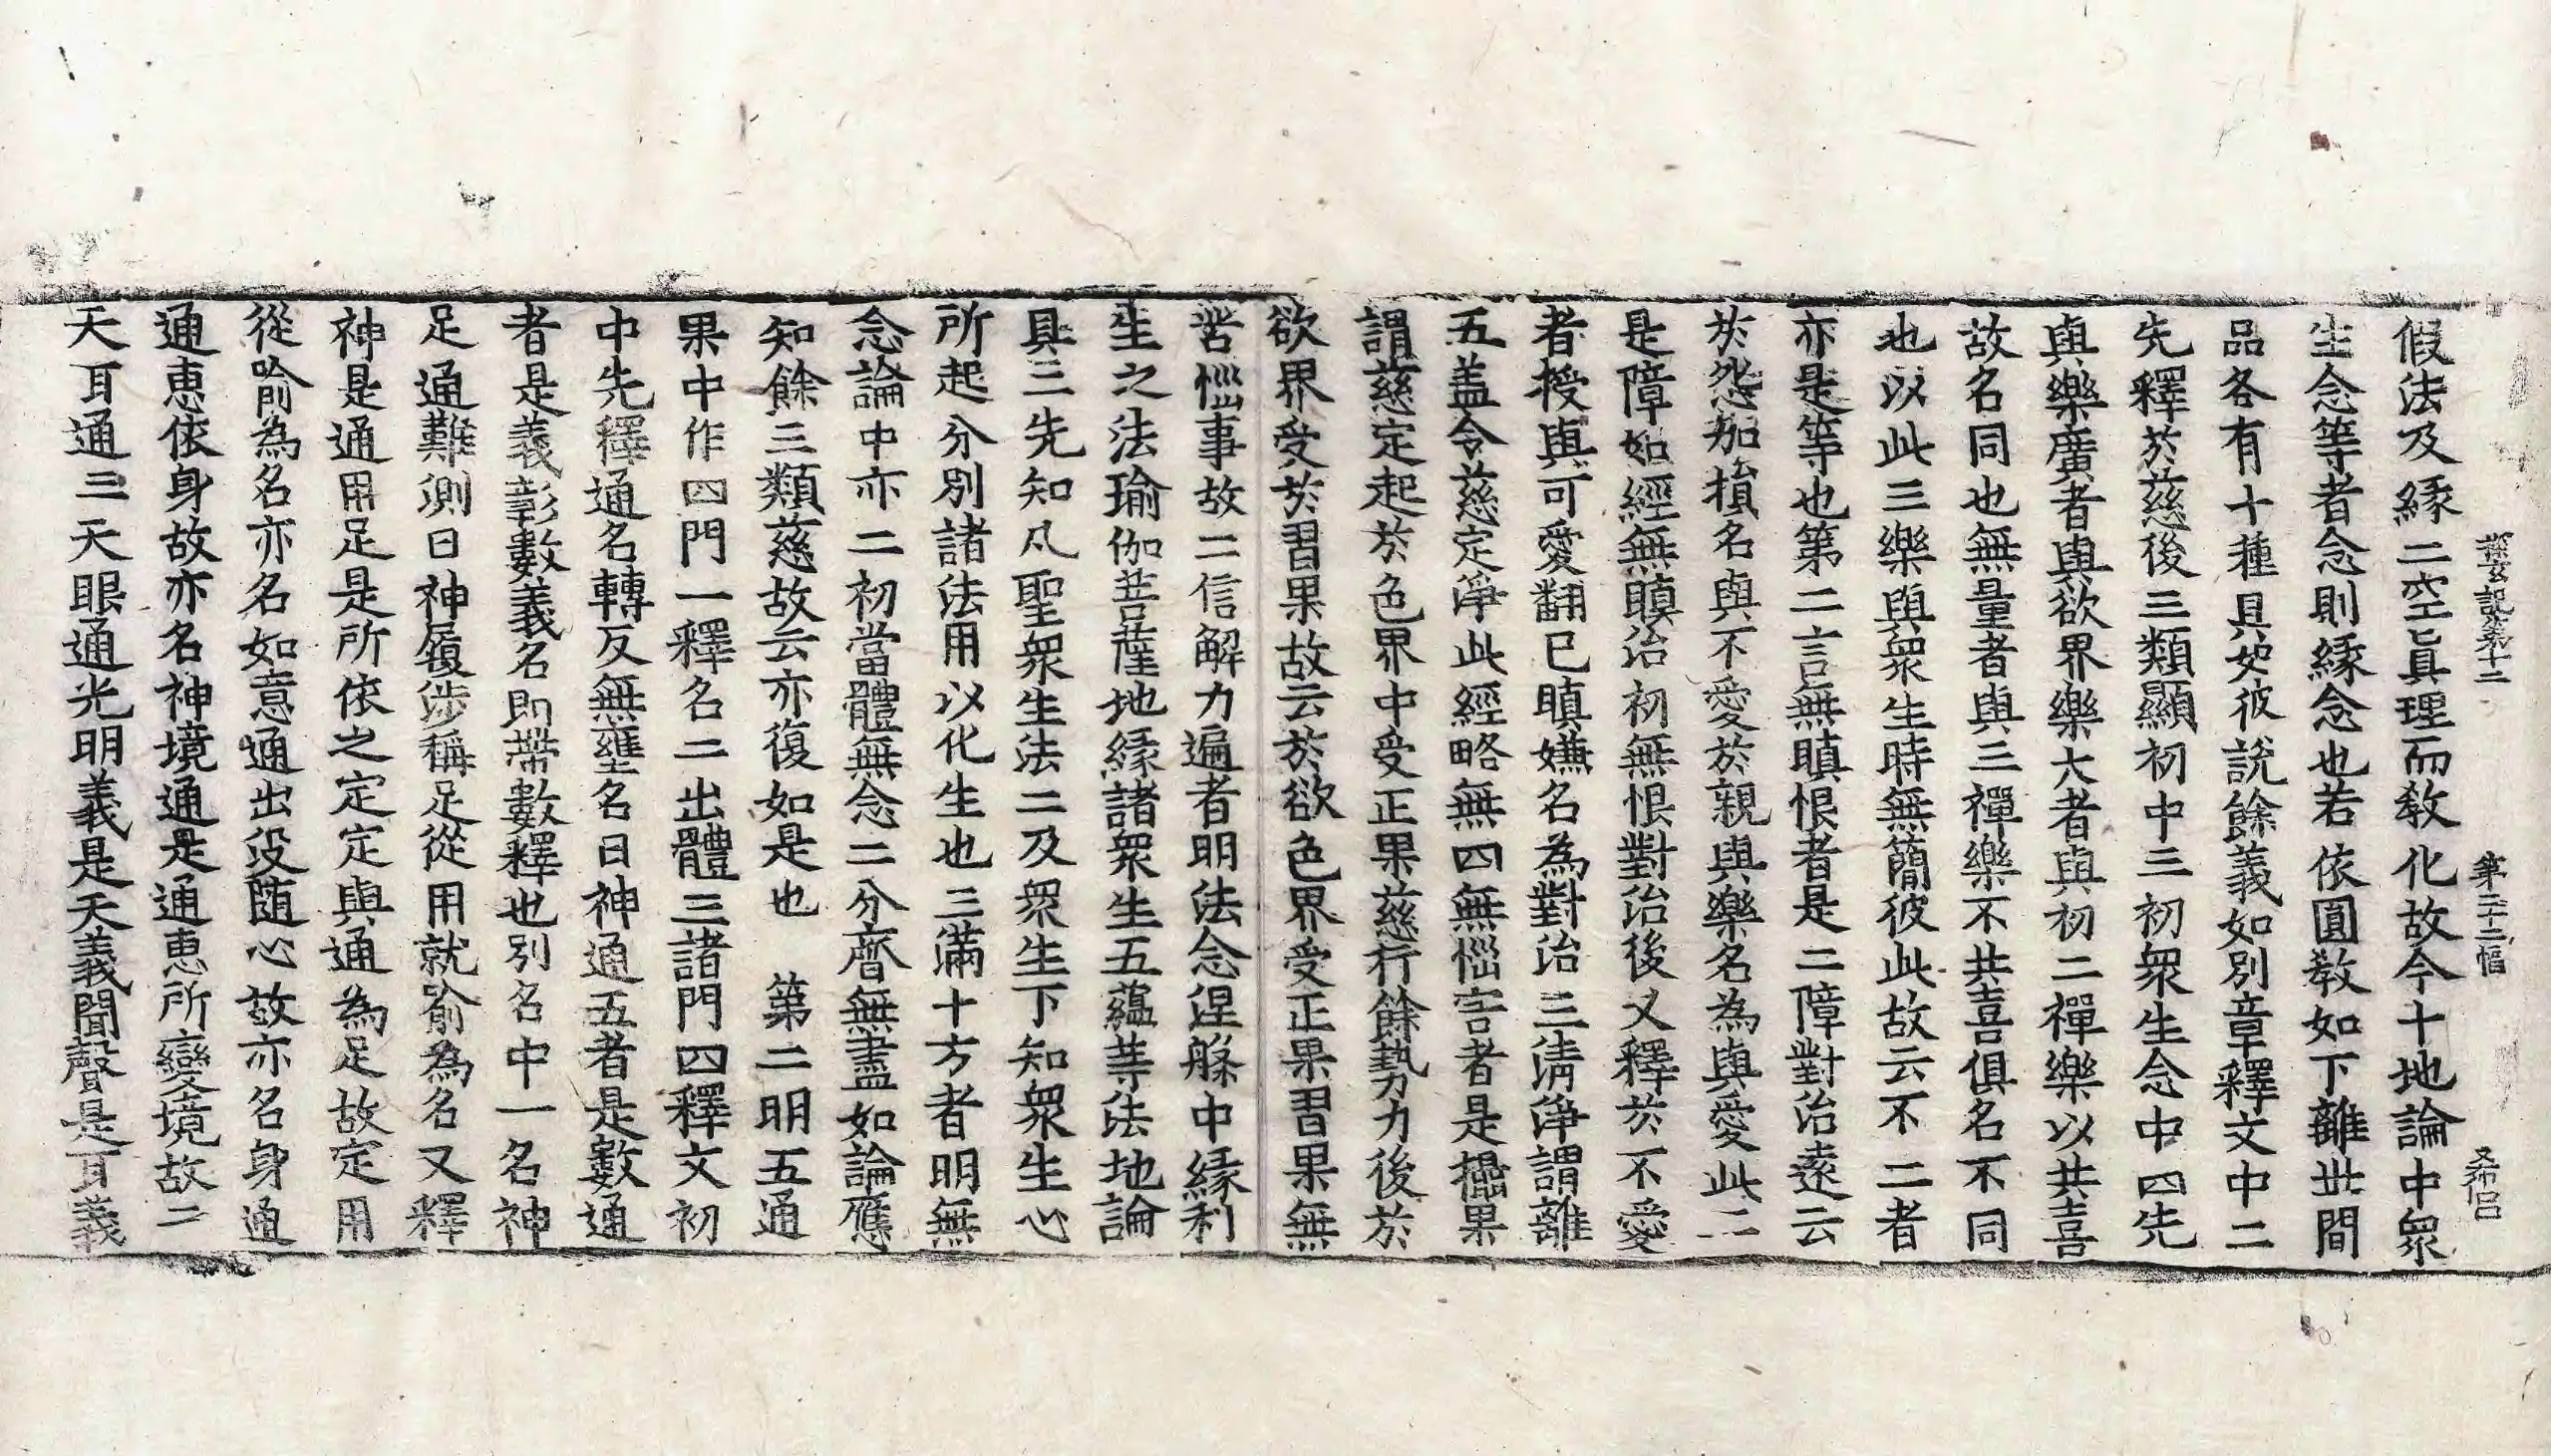 探玄記第十二 第三十二幅 又希侣
假法及緣二空眞理而敎化故今十地論中衆
生念等者念則緣念也若依圓教如下離世間
品各有十種具如彼說餘義如別章釋文中二
先釋於慈後三類顯初中三初衆生念中四先
與樂廣者與欲界樂大者與初二禪樂以共喜
故名同也無量者與三禪樂不共喜俱名不同
也以此三樂與衆生時無簡彼此故云不二者
亦是等也第二言無瞋恨者是二障對治遠云
於怨加損名與不愛於親與樂名為與愛此二
是障如經無瞋治初無恨對治後又釋於不愛
者授與可愛翻已瞋嫌名為對治三清淨謂離
五盖令慈定淨此經略無四無惱害者是攝果
謂慈定起於色界中受正果慈行餘勢力後於
欲界受於習果故云於欲色界受正果習果無
苦惱事故二信解力遍者明法念涅槃中緣利
生之法瑜伽菩薩地緣諸衆生五蘊等法地論
具三先知凡聖衆生法二及衆生下知衆生心
所起分別諸法用以化生也三滿十方者明無
念論中亦二初當體無念二分齊無盡如論應
知餘三類慈故云亦復如是也 第二明五通
果中作四門一釋名二出體三諸門四釋文初
中先釋通名轉反無壅名曰神通五者是數通
者是義彰數義名即帶數釋也別名中一名神
足通難測曰神履涉稱足從用就喻為名又釋
神是通用足是所依之定定與通為足故定用
從喻為名亦名如意通出沒随心故亦名身通
通恵依身故亦名神境通是通恵所變境故二
天耳通三天眼通光明義是天義聞聲是耳義